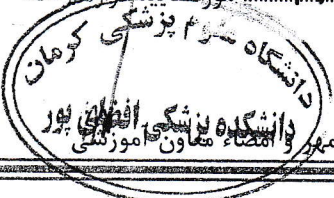 دانشگاه علوم پزشکی کرمان
دانشکده پزشکی افضلی پور
مهر و امضاء معاون آموزشی